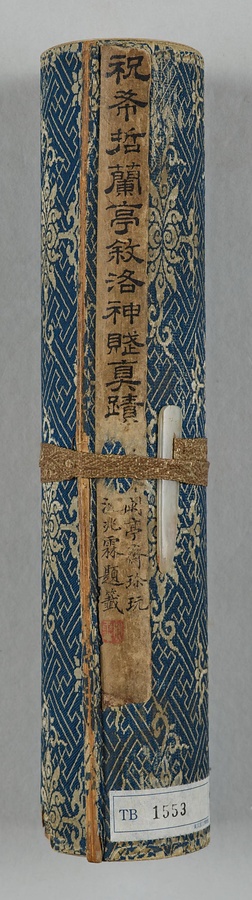 祝希哲蘭亭敘洛神賦真蹟
亭齋珍玩
兆霖題籤
TB 1553